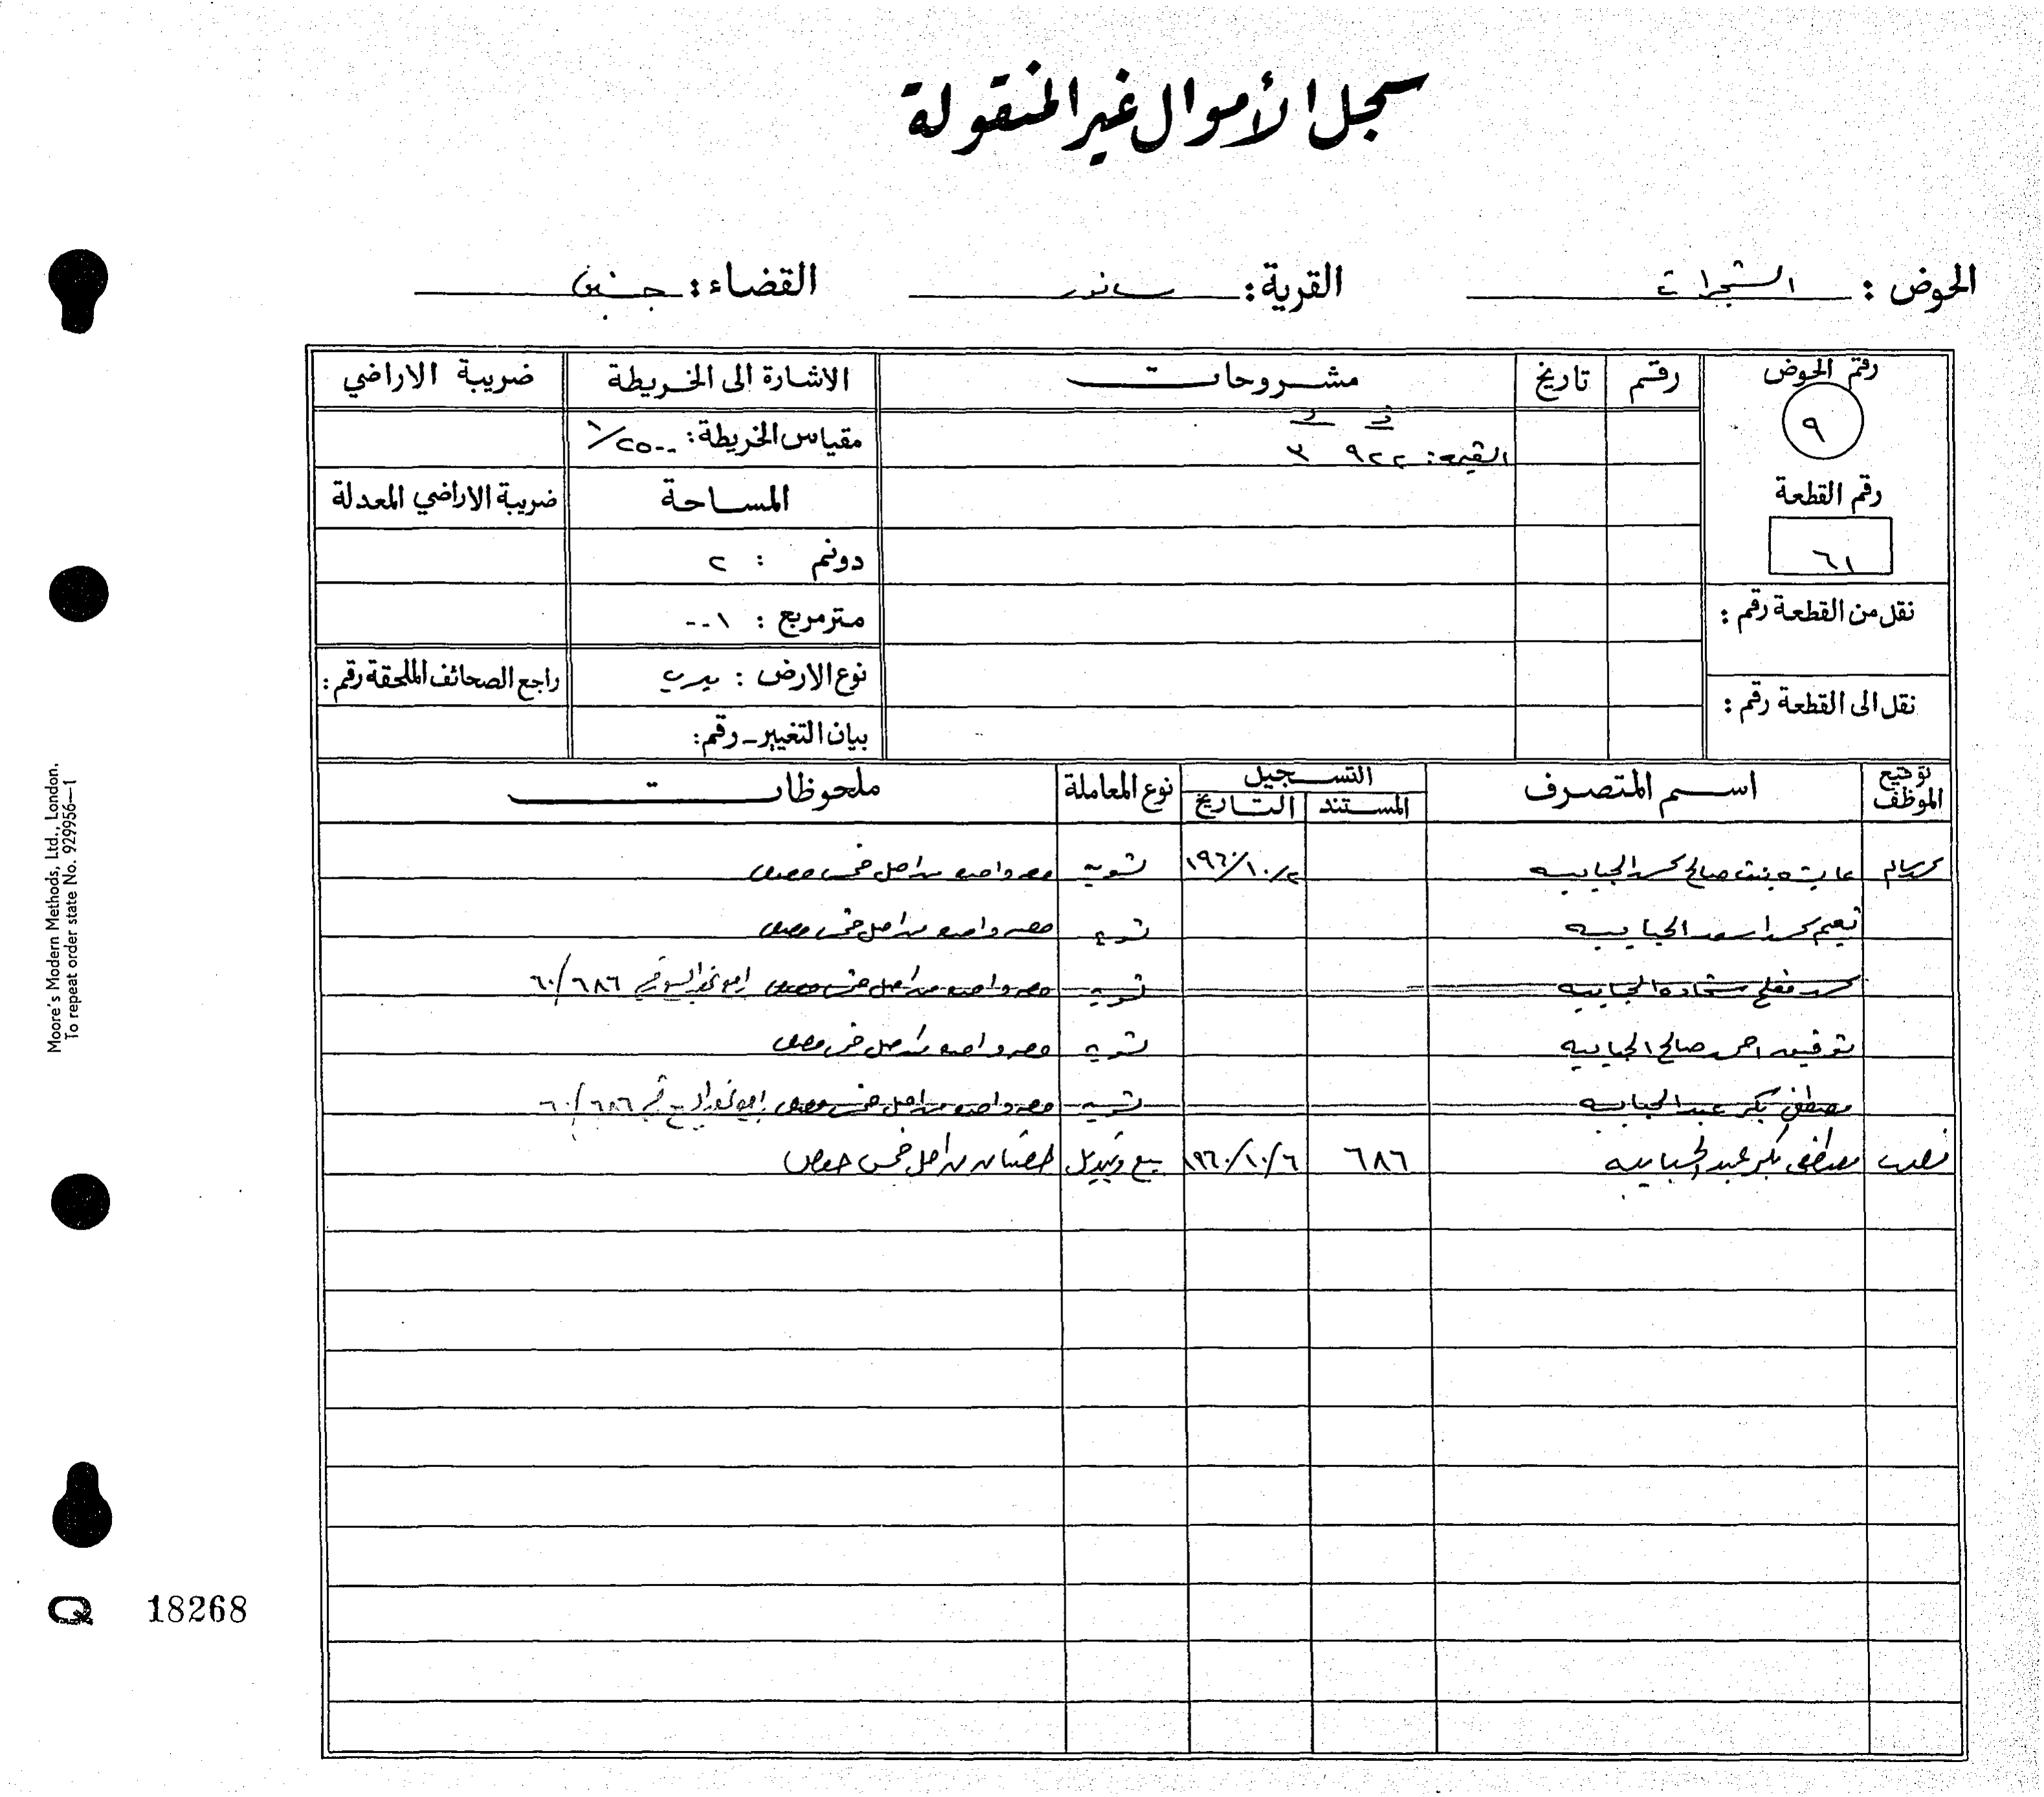 سجل الأموال غير المنقولة
الحوض : الشجرات القرية : سانور القضاء : جنين
رقم الحوض رقم تاريخ مشروحات الاشارة الى الخريطة ضريبة الاراضي
٩
القيمة: ٩٢٢ ٣ مقياس الخريطة: ١/٢٥٠٠
رقم القطعة المساحة ضريبة الاراضي المعدلة
٦١ دونم : ٢
نقل من القطعة رقم : متر مربع : ١٠٠
نوع الارض : راجع الصحائف الملحقة رقم :
نقل الى القطعة رقم :
بيان التغيير - رقم:
توقيع الموظف اسم المتصرف التسجيل نوع المعاملة ملحوظات
المستند التاريخ
بنت صالح الجبابيه ١٩٦٠/١٠/٢ تسويه حصه واحده من اصل خمس حصص
نعيم اسعد الجبابيه تسويه حصه واحده من اصل خمس حصص
مفلح شحاده الجبابيه تسويه حصه واحده من اصل خمس حصص ٦٠/٦٨٦
توفيق احمد صالح الجبابيه تسويه حصه واحده من اصل خمس حصص
مصطفى بكر عبد الجبابيه تسويه حصه واحده من اصل خمس حصص ٦٠/٦٨٦
مصطفى بكر عبد الجبابيه ٦٨٦ ١٩٦٠/١٠/٦ بيع وتبديل حصتان من اصل خمس حصص
Moore's Modern Methods, Ltd., London.
To repeat order state No. 929956—1
Q 18268